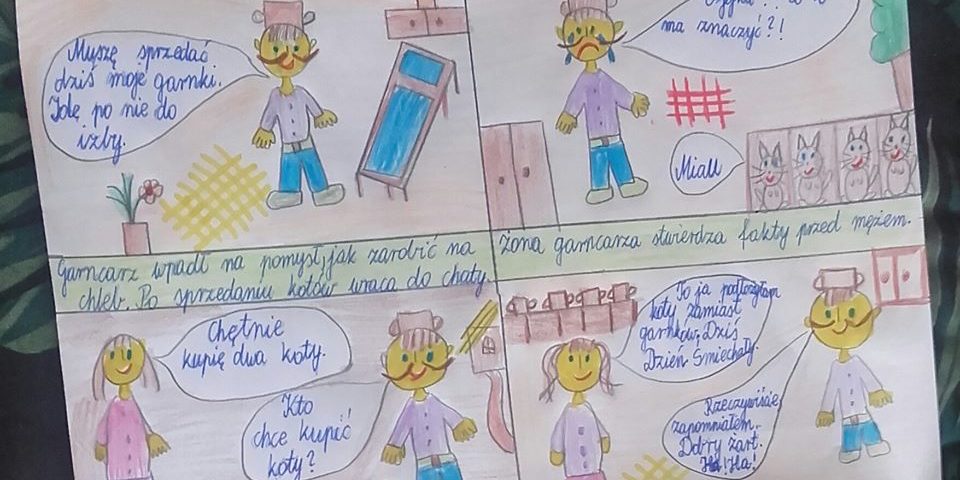 Myszę sprzedać
dziś moje garnki.
Idę po nie do
izby.
ma znaczyć?!
Miau
Garncarz wpadł na pomysł, jak zarobić na
chleb. Po sprzedaniu kotów wraca do chaty.
Żona garncarza stwierdza fakty przed mężem.
Chętnie
kupię dwa koty.
Kto
chce kupić
koty?
To ja podłożyłam
koty zamiast
garnków. Dziś
Dzień Śmiechały.
Rzeczywiście,
zapomniałem.
Dobry żart.
Ha! Ha!